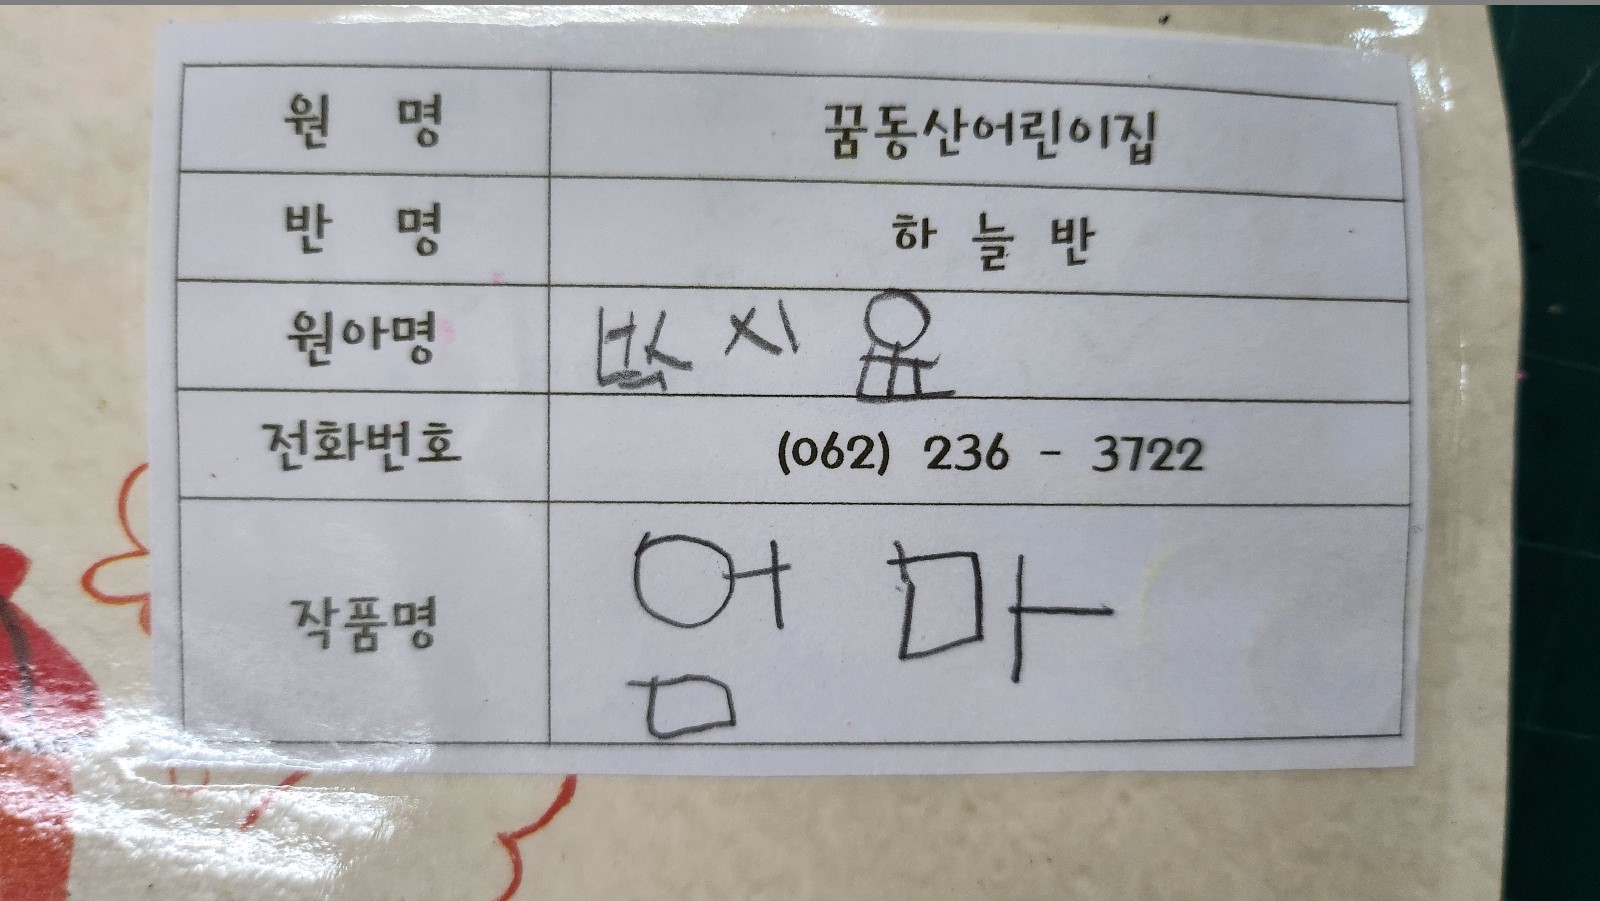 원 명 꿈동산어린이집
반 명 하늘반
원아명
전화번호 (062) 236 - 3722
작품명 엄마